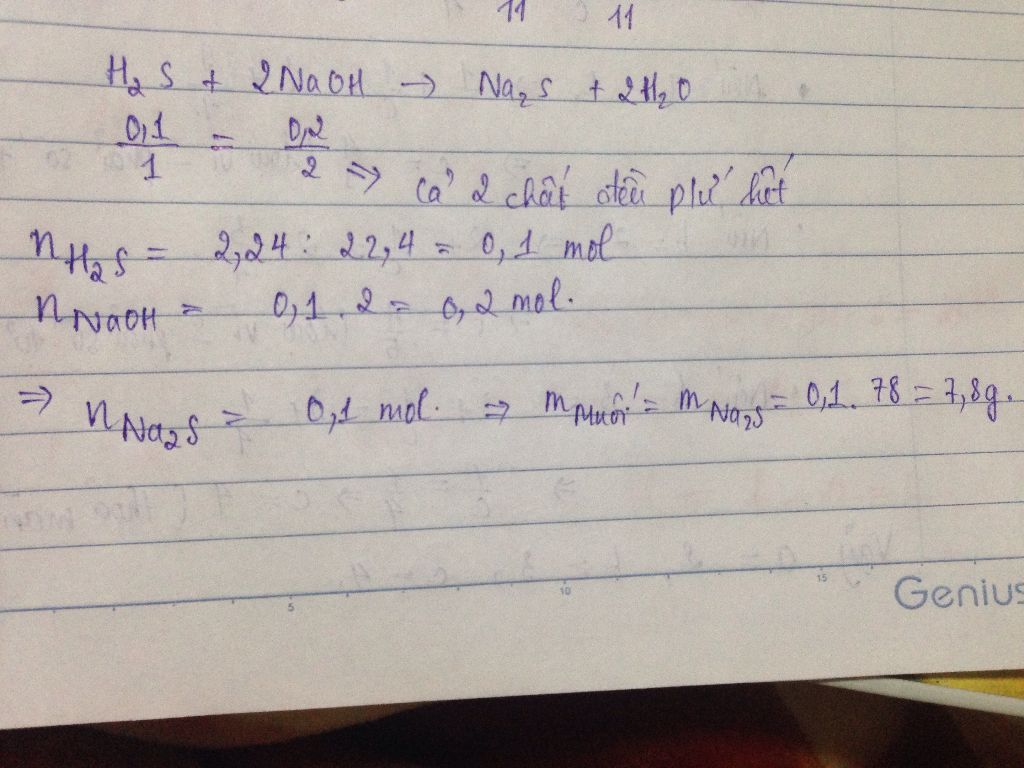 11 11
H₂S + 2NaOH → Na₂S + 2H₂O
0,1/1 = 0,2/2 ⇒ Cả 2 chất đều pứ hết
n H₂S = 2,24 : 22,4 = 0,1 mol
n NaOH = 0,1 . 2 = 0,2 mol.
⇒ n Na₂S = 0,1 mol. ⇒ m Muối = m Na₂S = 0,1 . 78 = 7,8g.
5 10 15
Genius